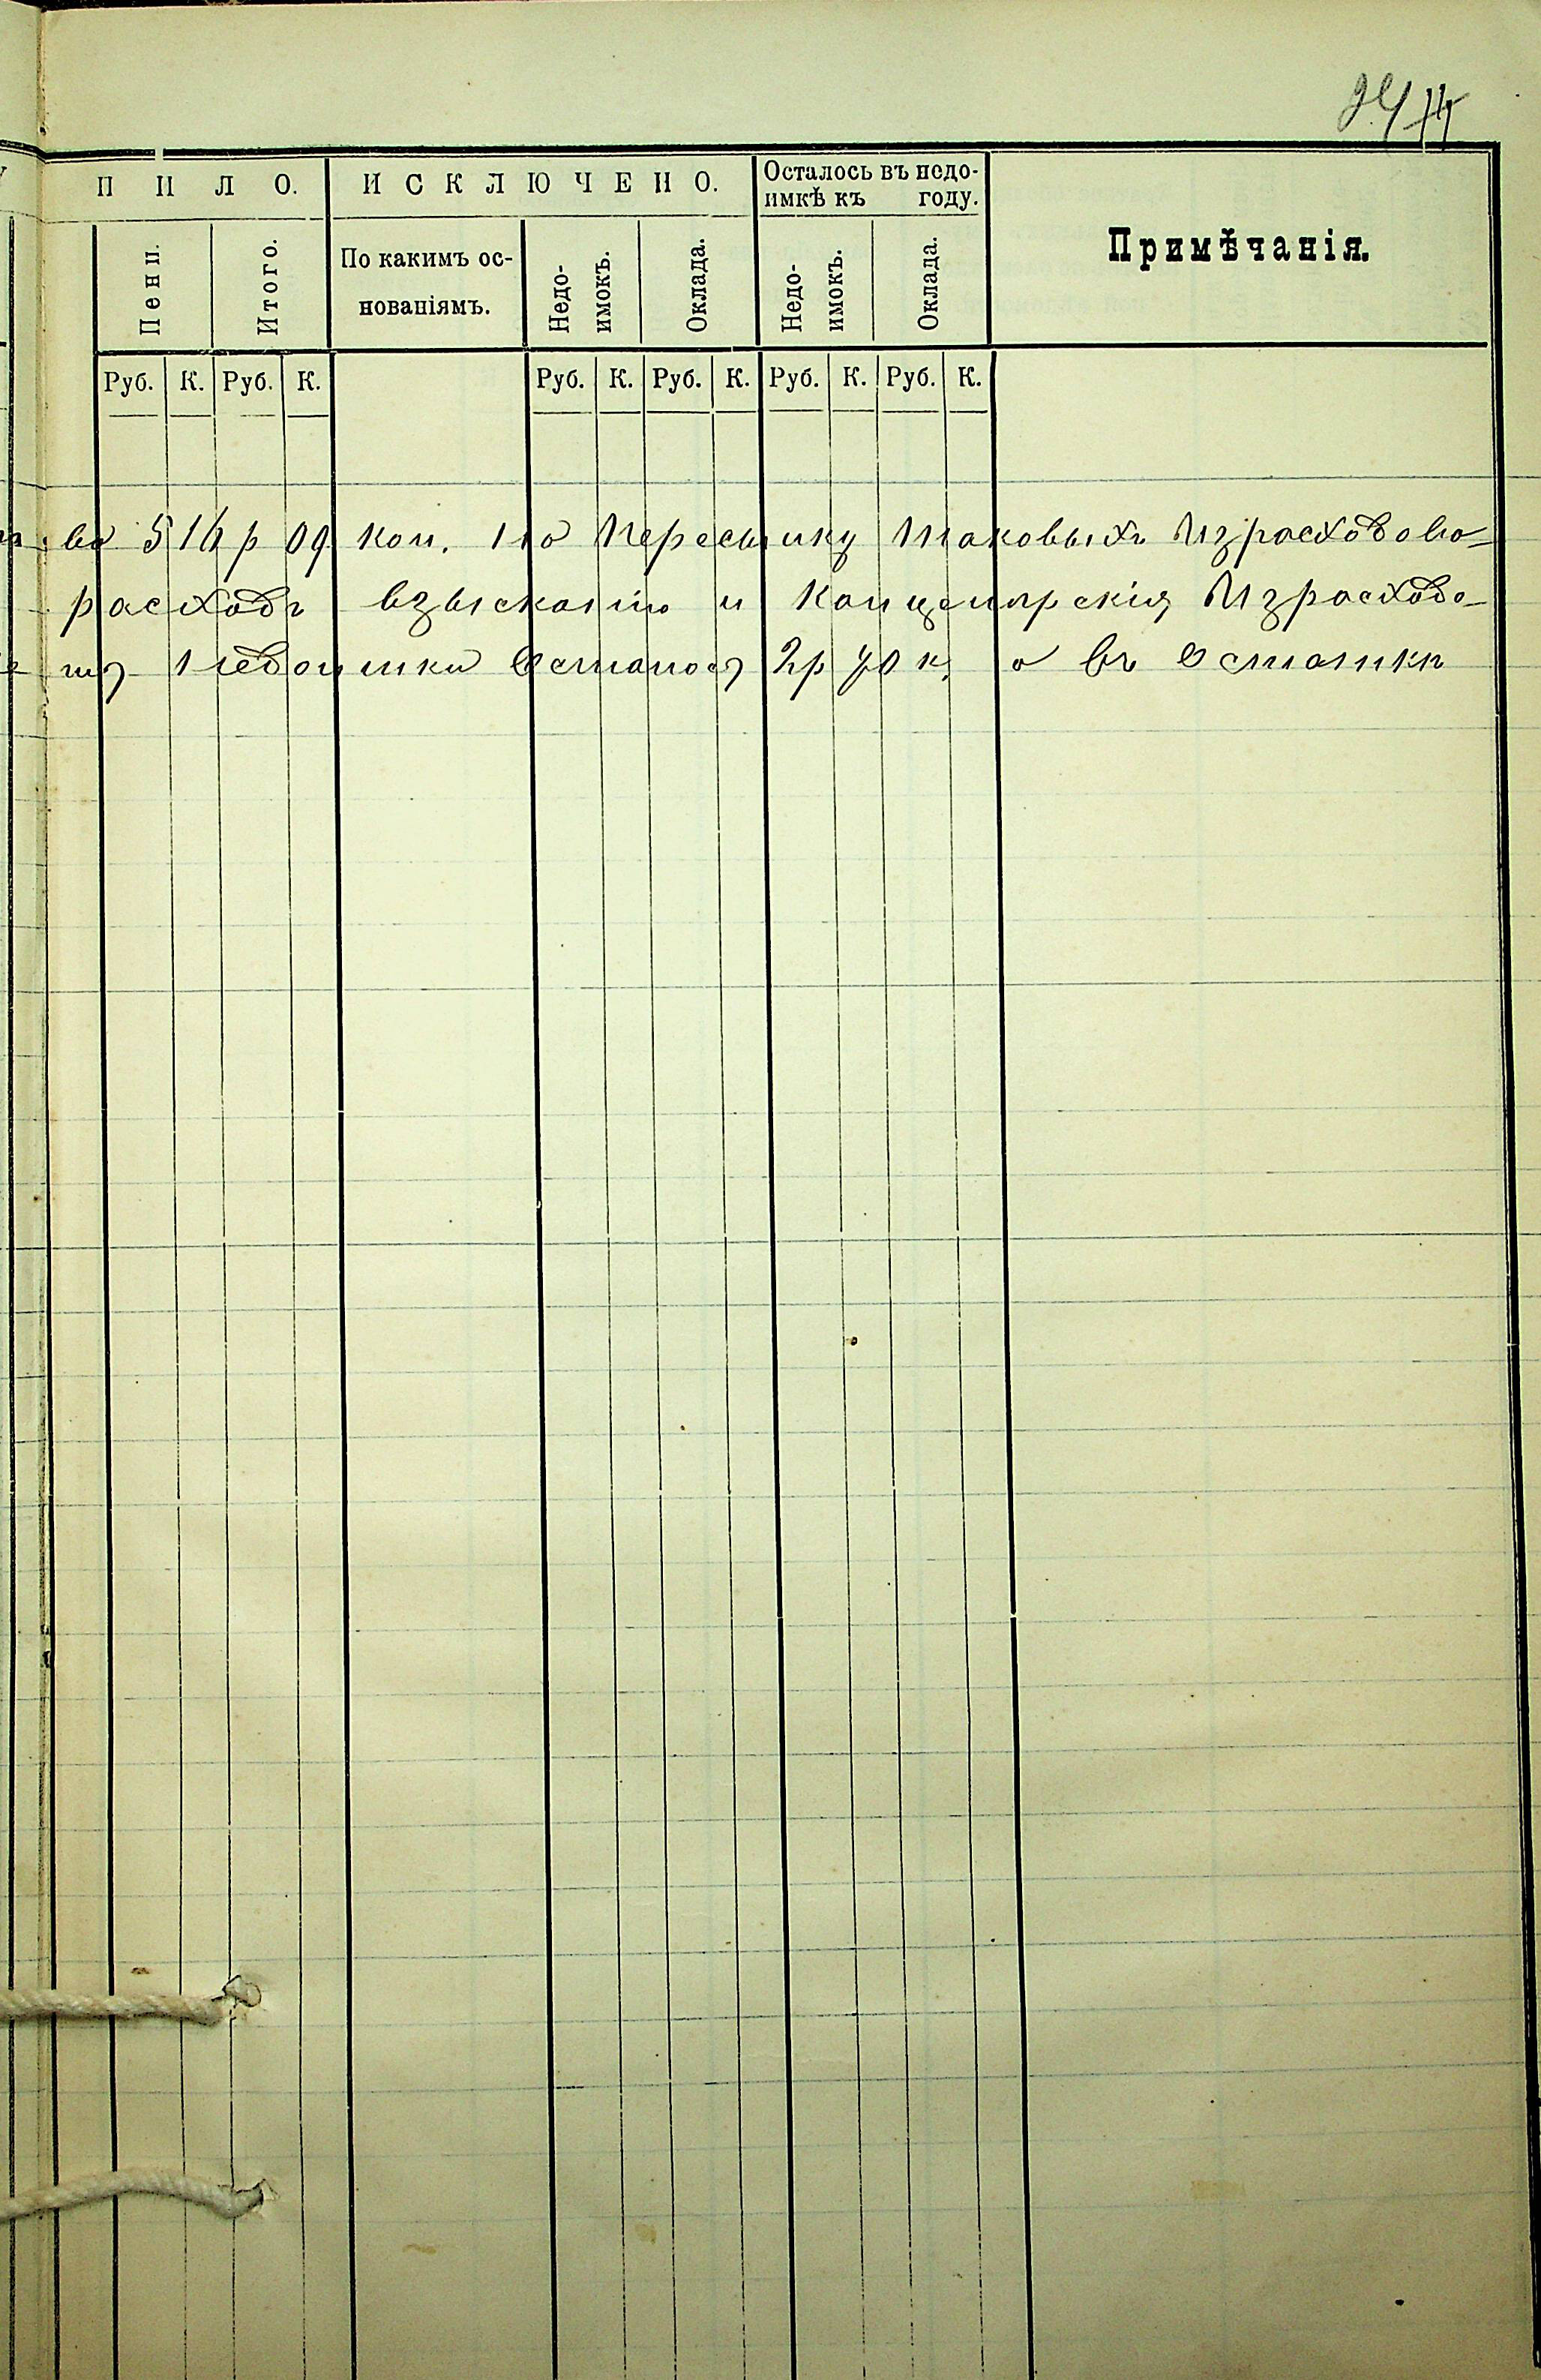 П И Л О. И С К Л Ю Ч Е Н О. Осталось въ недо-
имкѣ къ году.
Примѣчанія.
Пени. Итого. По какимъ ос-
нованіямъ. Недо-
имокъ. Оклада. Недо-
имокъ. Оклада.
Руб. К. Руб. К. Руб. К. Руб. К. Руб. К. Руб. К.
во 516 р 09 коп. На Пересылку таковыхъ Израсходова-
расходъ взысканію и Канцелярскія Израсходо-
недоимки Осталось 2р 70 к, а въ Остатки